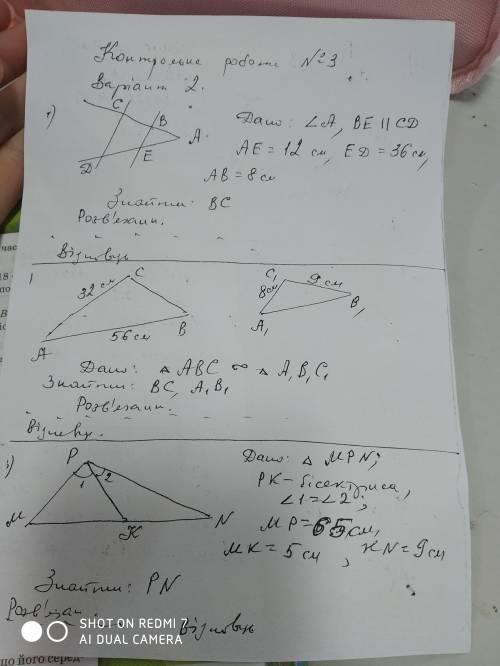 Контрольна робота №3
Варіант 2.
1)
C
B
A
D
E
Дано: ∠A, BE || CD
AE = 12 см, ED = 36 см,
AB = 8 см
Знайти: BC
Розв'язання.
Відповідь
32 см
C
A
56 см
B
C₁
9 см
8 см
B₁
A₁
Дано: △ ABC ∞ △ A₁B₁C₁
Знайти: BC, A₁B₁
Розв'язання.
Відповідь.
3)
P
1
2
M
K
N
Дано: △ MPN;
PK – бісектриса,
∠1 = ∠2,
MP = 65 см,
MK = 5 см, KN = 9 см
Знайти: PN
Відповідь
SHOT ON REDMI 7
AI DUAL CAMERA